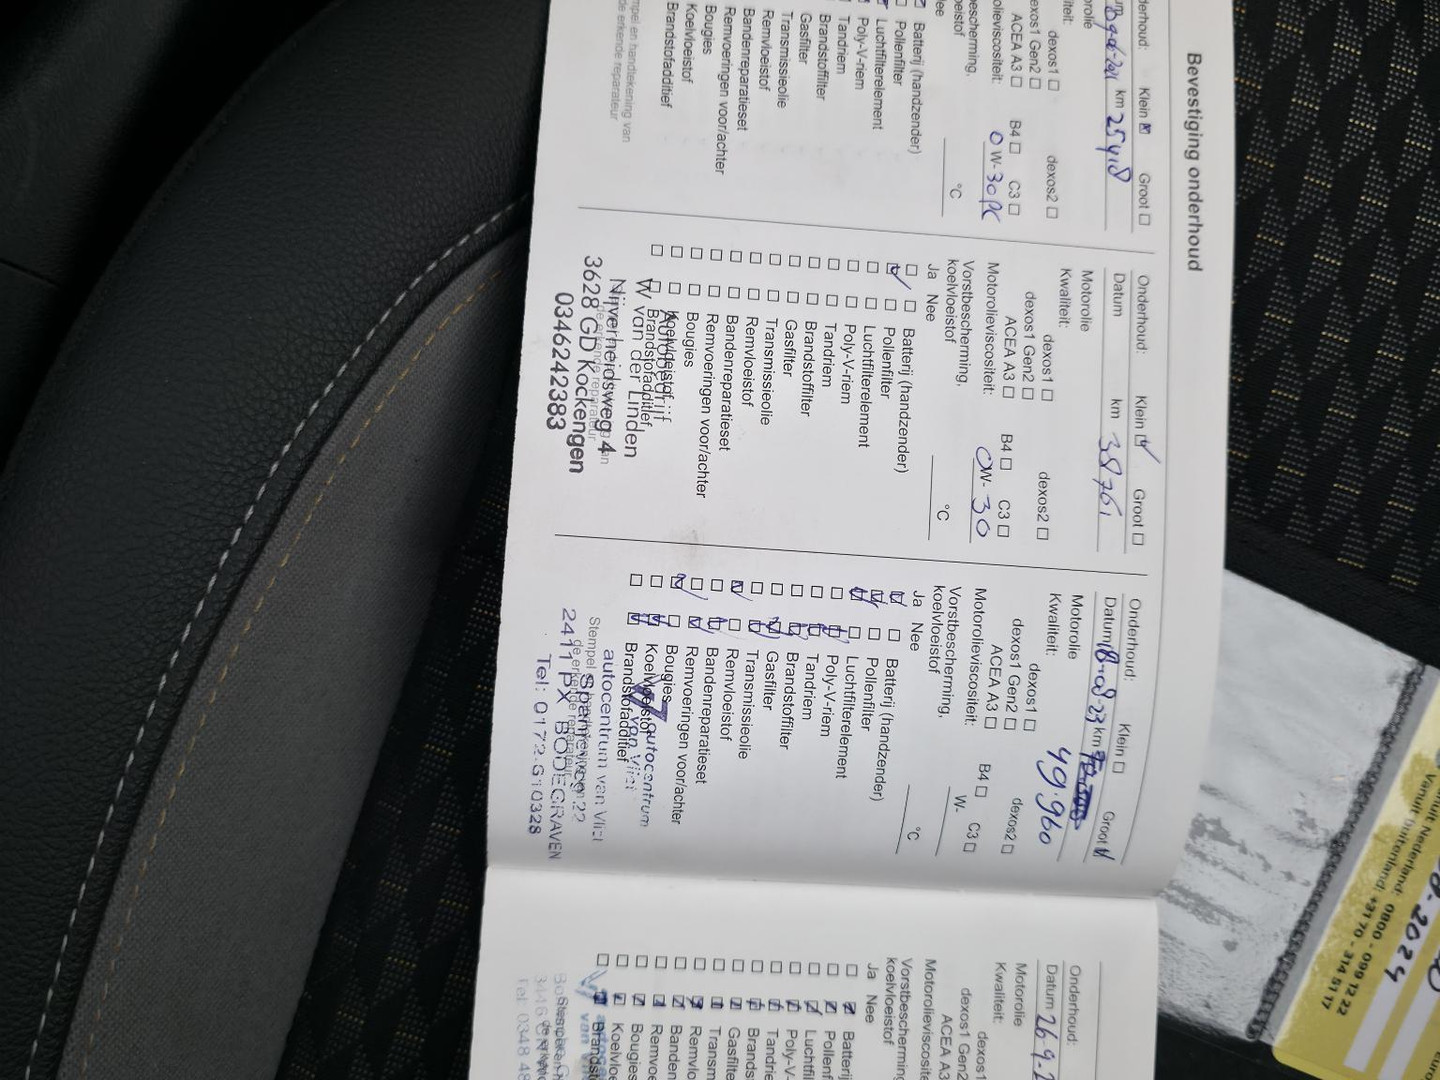 Bevestiging onderhoud
derhoud: Klein Groot
km 25418
dexos1 dexos2
exos1 Gen2
ACEA A3 B4 C3
olieviscositeit: 0 W-30
escherming,
oeistof °C
Batterij (handzender)
Pollenfilter
Luchtfilterelement
Poly-V-riem
Tandriem
Brandstoffilter
Gasfilter
Transmissieolie
Remvloeistof
Bandenreparatieset
Remvoeringen voor/achter
Bougies
Koelvloeistof
Brandstofadditief
mpel en handtekening van
de erkende reparateur
Onderhoud: Klein Groot
Datum km 38761
Motorolie
Kwaliteit: dexos1 dexos2
dexos1 Gen2
ACEA A3 B4 C3
Motorolieviscositeit: 0W-30
Vorstbescherming,
koelvloeistof °C
Ja Nee
Batterij (handzender)
Pollenfilter
Luchtfilterelement
Poly-V-riem
Tandriem
Brandstoffilter
Gasfilter
Transmissieolie
Remvloeistof
Bandenreparatieset
Remvoeringen voor/achter
Bougies
Koelvloeistof
Brandstofadditief
Autobedrijf
W van der Linden
Nijverheidsweg 4
3628 GD Kockengen
0346242383
Onderhoud: Klein Groot
Datum 18-08-23 km
49.960
Motorolie
Kwaliteit: dexos1 dexos2
dexos1 Gen2
ACEA A3 B4 C3
Motorolieviscositeit: W-
Vorstbescherming,
koelvloeistof °C
Ja Nee
Batterij (handzender)
Pollenfilter
Luchtfilterelement
Poly-V-riem
Tandriem
Brandstoffilter
Gasfilter
Transmissieolie
Remvloeistof
Bandenreparatieset
Remvoeringen voor/achter
Bougies
Koelvloeistof
Brandstofadditief
autocentrum
van Vliet
Stempel
de erkende reparateur
autocentrum van Vliet
2411 PX BODEGRAVEN
Tel: 0172-610328
Onderhoud:
Datum 26-9-2
Motorolie
Kwaliteit: dexos1
dexos1 Gen2
ACEA A3
Motorolieviscosite
Vorstbescherming
koelvloeistof
Ja Nee
Batterij
Pollenf
Luchtfil
Poly-V-
Tandrie
Brands
Gasfilte
Transm
Remvlo
Banden
Remvoe
Bougies
Koelvloe
Brandst
Tel: 0348 48
08-2024
anuit Nederland: 0800 - 099 12 22
Vanuit buitenland: +31 70 - 314 51 17